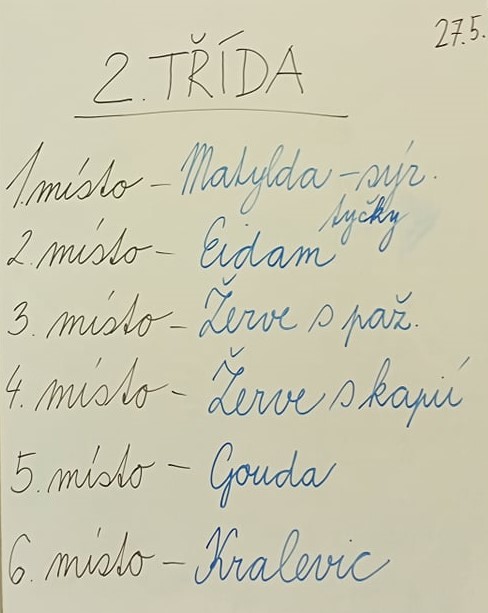 27.5.
2. TŘÍDA
1. místo – Matylda – sýr.
tyčky
2. místo – Eidam
3. místo – Žerve s paž.
4. místo – Žerve s kapií
5. místo – Gouda
6. místo – Kralevic